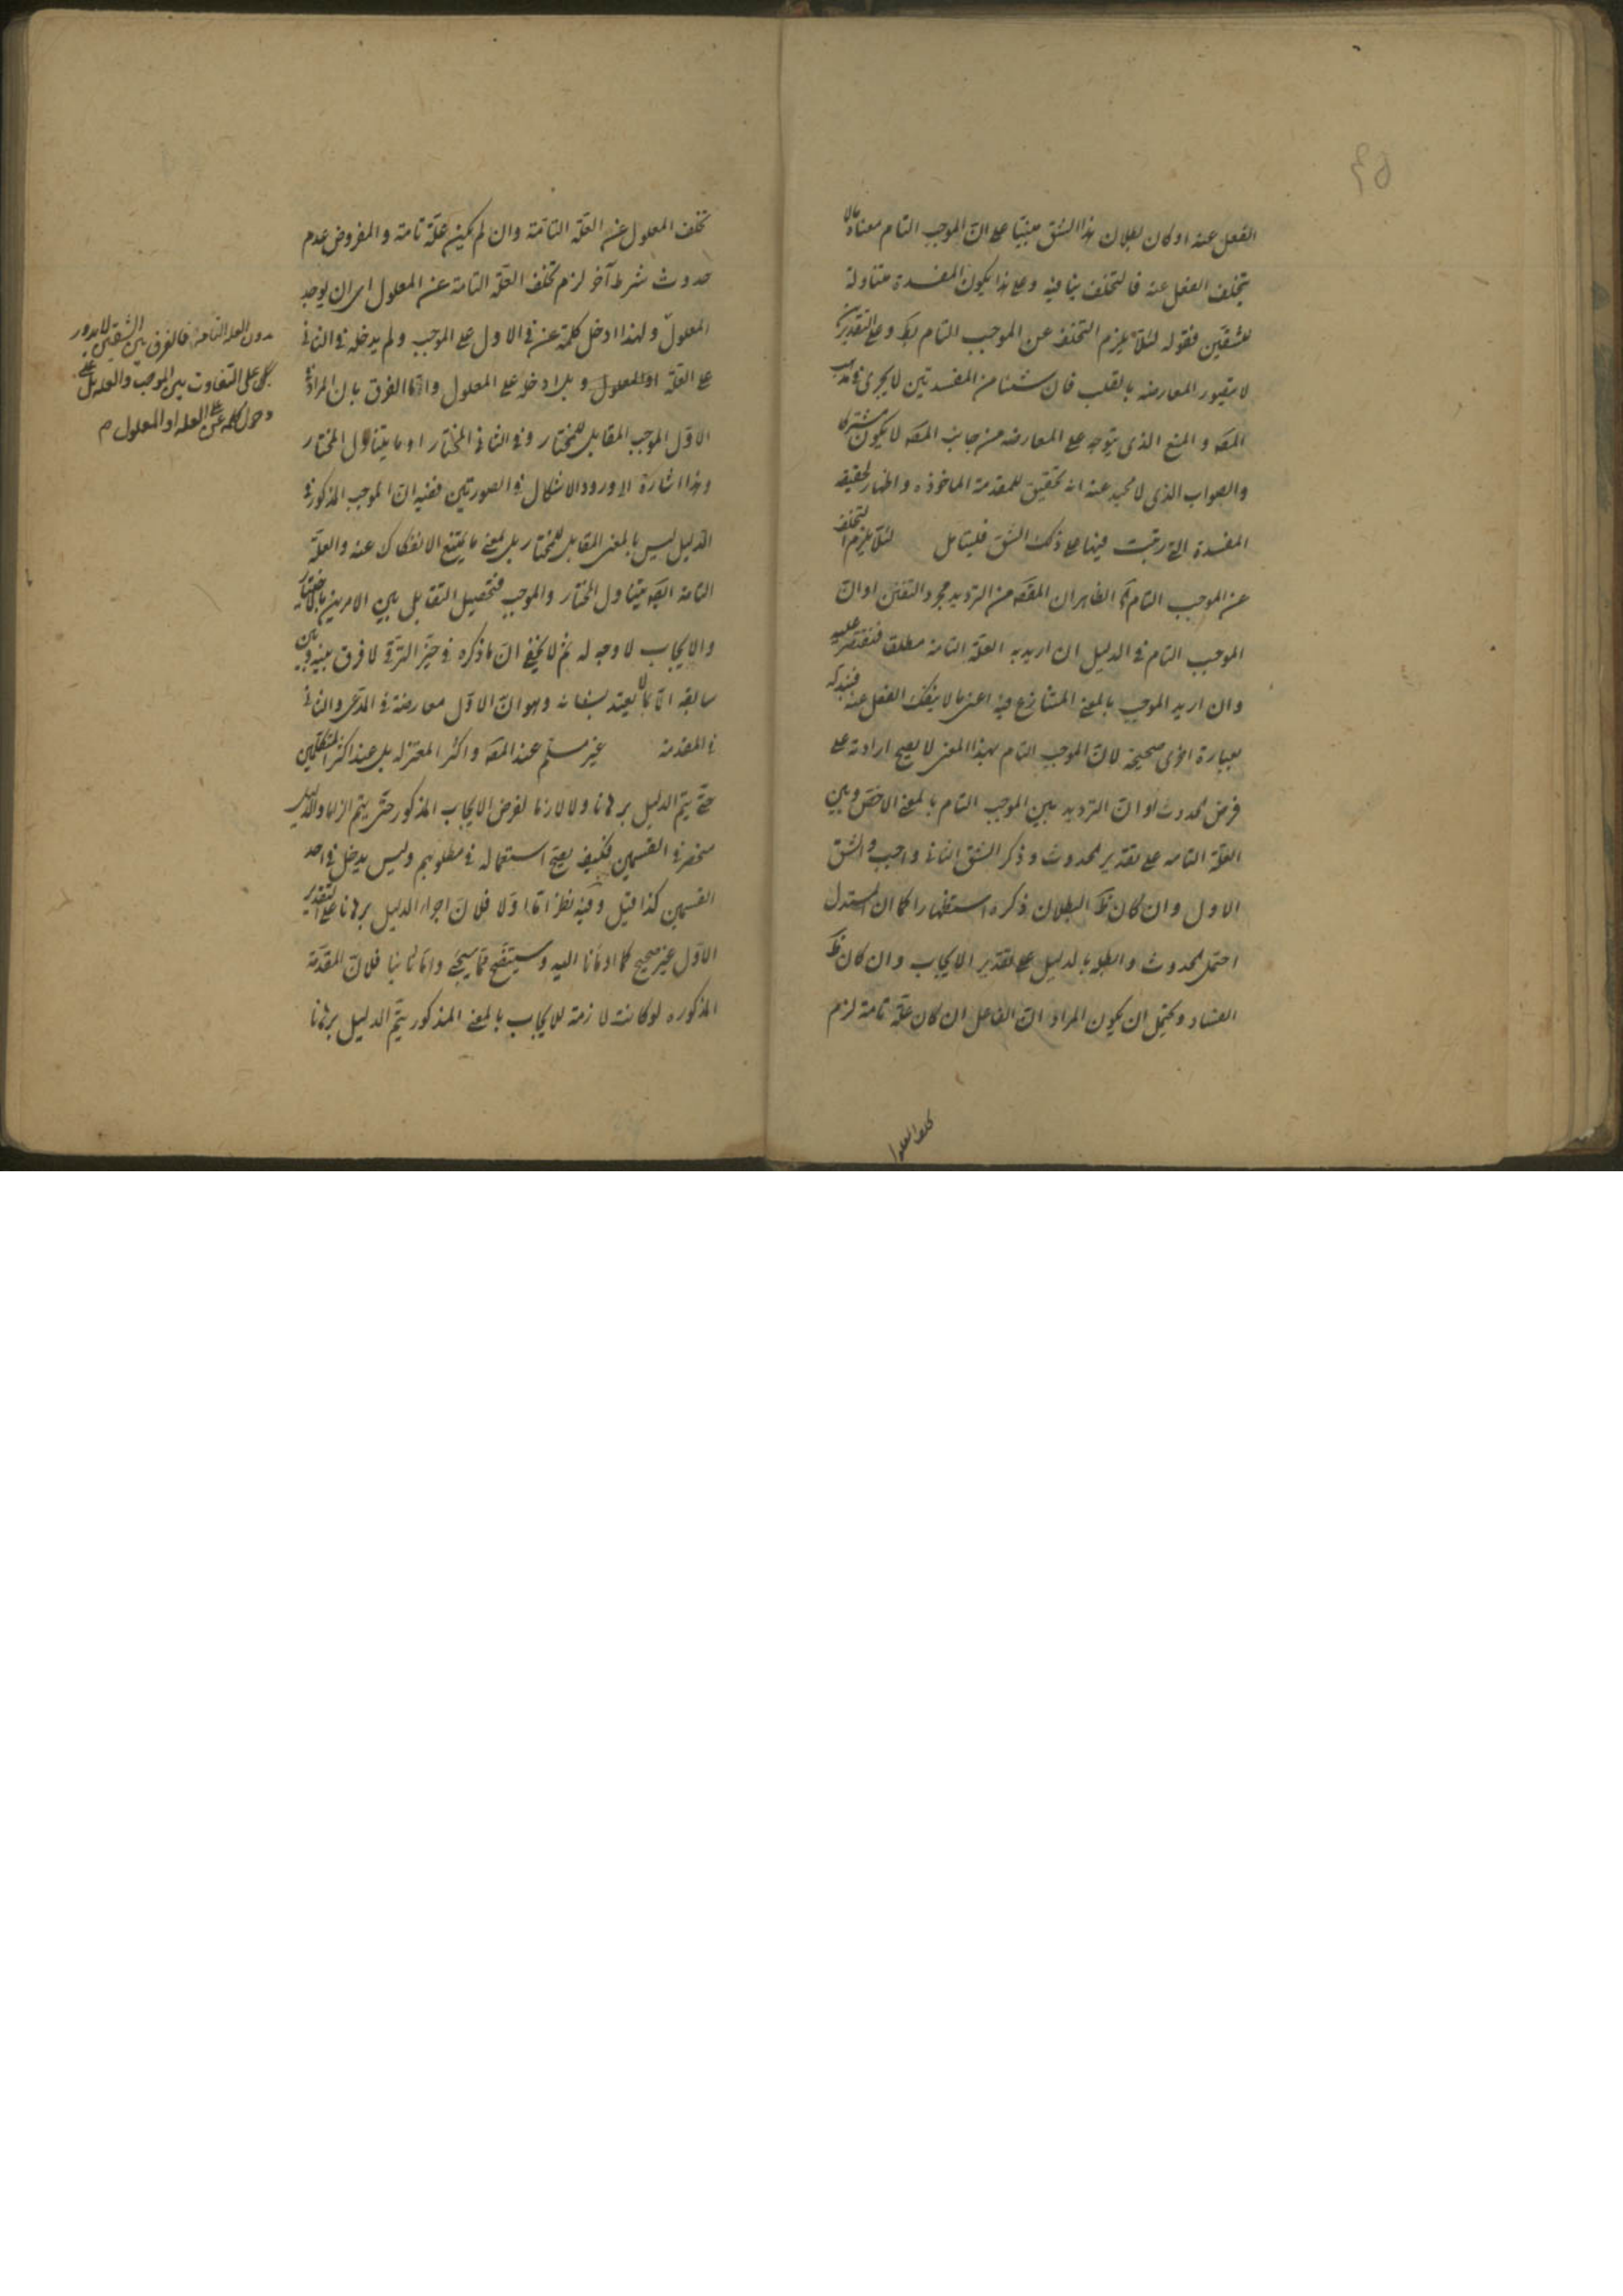 الفعل عنه او كان بطلان هذا الشق مبنيا على ان الموجب التام معناه ما لا
يتخلف الفعل عنه فالتخلف ينافيه وعلى هذا يكون المفسدة متناولة
للشقين فقوله لئلا يلزم التخلف عن الموجب التام وعلى التقديرين
لا يتصور المعارضه بالقلب فان شيئا من المفسدتين لا يجرى فى مذهب
المصه والمنع الذى يتوجه على المعارضه من جانب المصه لا يكون مشتركا
والصواب الذى لا محيد عنه انه تحقيق للمقدمة الماخوذه واظهار لحقيقه
المفسدة التى رتبت فيها على ذلك الشق فليتامل لئلا يلزم التخلف
عن الموجب التام الظاهر ان المقصه من الترديد مجرد التفنن او ان
الموجب التام فى الدليل ان اريد به العلة التامة مطلقا فنقتصر عليه
وان اريد الموجب بالمعنى المتنازع فيه اعنى ما لا ينفك الفعل عنه فنبدله
بعبارة اخرى صحيحة لان الموجب التام بهذا المعنى لا يصح ارادته على
فرض الحدوث او ان الترديد بين الموجب التام بالمعنى الاخص وبين
العلة التامه على تقدير الحدوث وذكر الشق الثانى واجب والشق
الاول وان كان ظ البطلان ذكره استظهارا كما ان المستدل
احتمل الحدوث وابطله بالدليل على تقدير الايجاب وان كان ظ
الفساد ويحتمل ان يكون المراد ان الفاعل ان كان علة تامة لزم
تخلف المعلول
تخلف المعلول عن العلة التامة وان لم يكن علة تامة والمفروض عدم
حدوث شرط آخر لزم تخلف العلة التامة عن المعلول اى ان يوجد
المعلول ولهذا ادخل كلمة عن فى الاول على الموجب ولم يدخله فى الثانى
على العلة او المعلول وبل ادخله على المعلول واما الفرق بان المراد فى
الاول الموجب المقابل للمختار وفى الثانى المختار او ما يتناول المختار
وهذا اشارة الى ورود الاشكال فى الصورتين ففيه ان الموجب المذكور فى
الدليل ليس بالمعنى المقابل للمختار بل بمعنى ما يمتنع الانفكاك عنه والعلة
التامة ايضه يتناول المختار والموجب فتحصيل التقابل بين الامرين بالاختيار
والايجاب لا وجه له ثم لا يخفى ان ما ذكره فى حيز الترقى لا فرق بينه وبين
سابقه الا بما لا يعتد بشانه وهو ان الاول معارضة فى المدعى والثانى
فى المقدمة غير مسلم عند المصه واكثر المعتزله بل عند اكثر المتكلمين
حتى يتم الدليل برهانا ولا لازما لفرض الايجاب المذكور حتى يتم الزاما والدليل
منحصر فى القسمين فكيف يصح استعماله فى مطلوبهم وليس يدخل فى احد
القسمين كذا قيل وفيه نظر اما اولا فلان اجراء الدليل برهانا على التقدير
الاول غير صحيح كما اومأنا اليه وسيتضح مما سيجئ واما ثانيا فلان المقدمة
المذكوره لو كانت لازمة للايجاب بالمعنى المذكور يتم الدليل برهانا
بدون العله التامة فالفرق بين الشقين لا يدور
على التفاوت بين الموجب والعله بل على
دخول كلمة عن على العله او المعلول م